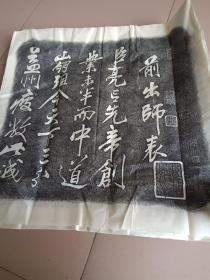 前出師表
臣亮言先帝創
業未半而中道
崩殂今天下三分
益州疲弊此誠